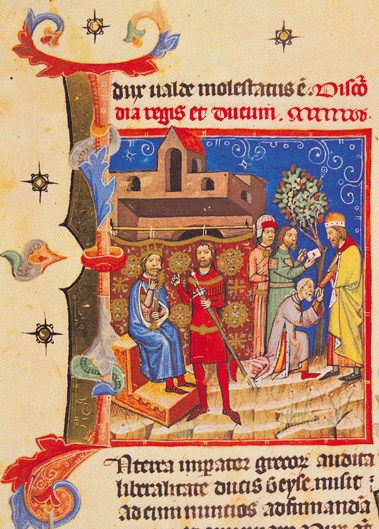 dux ualde molestatus ē. Discō
dia regis et ducum.
Nterea impator grecoꝝ audita
liberalitate ducis Geyse, misit
ad eum nuncios ad firmandā